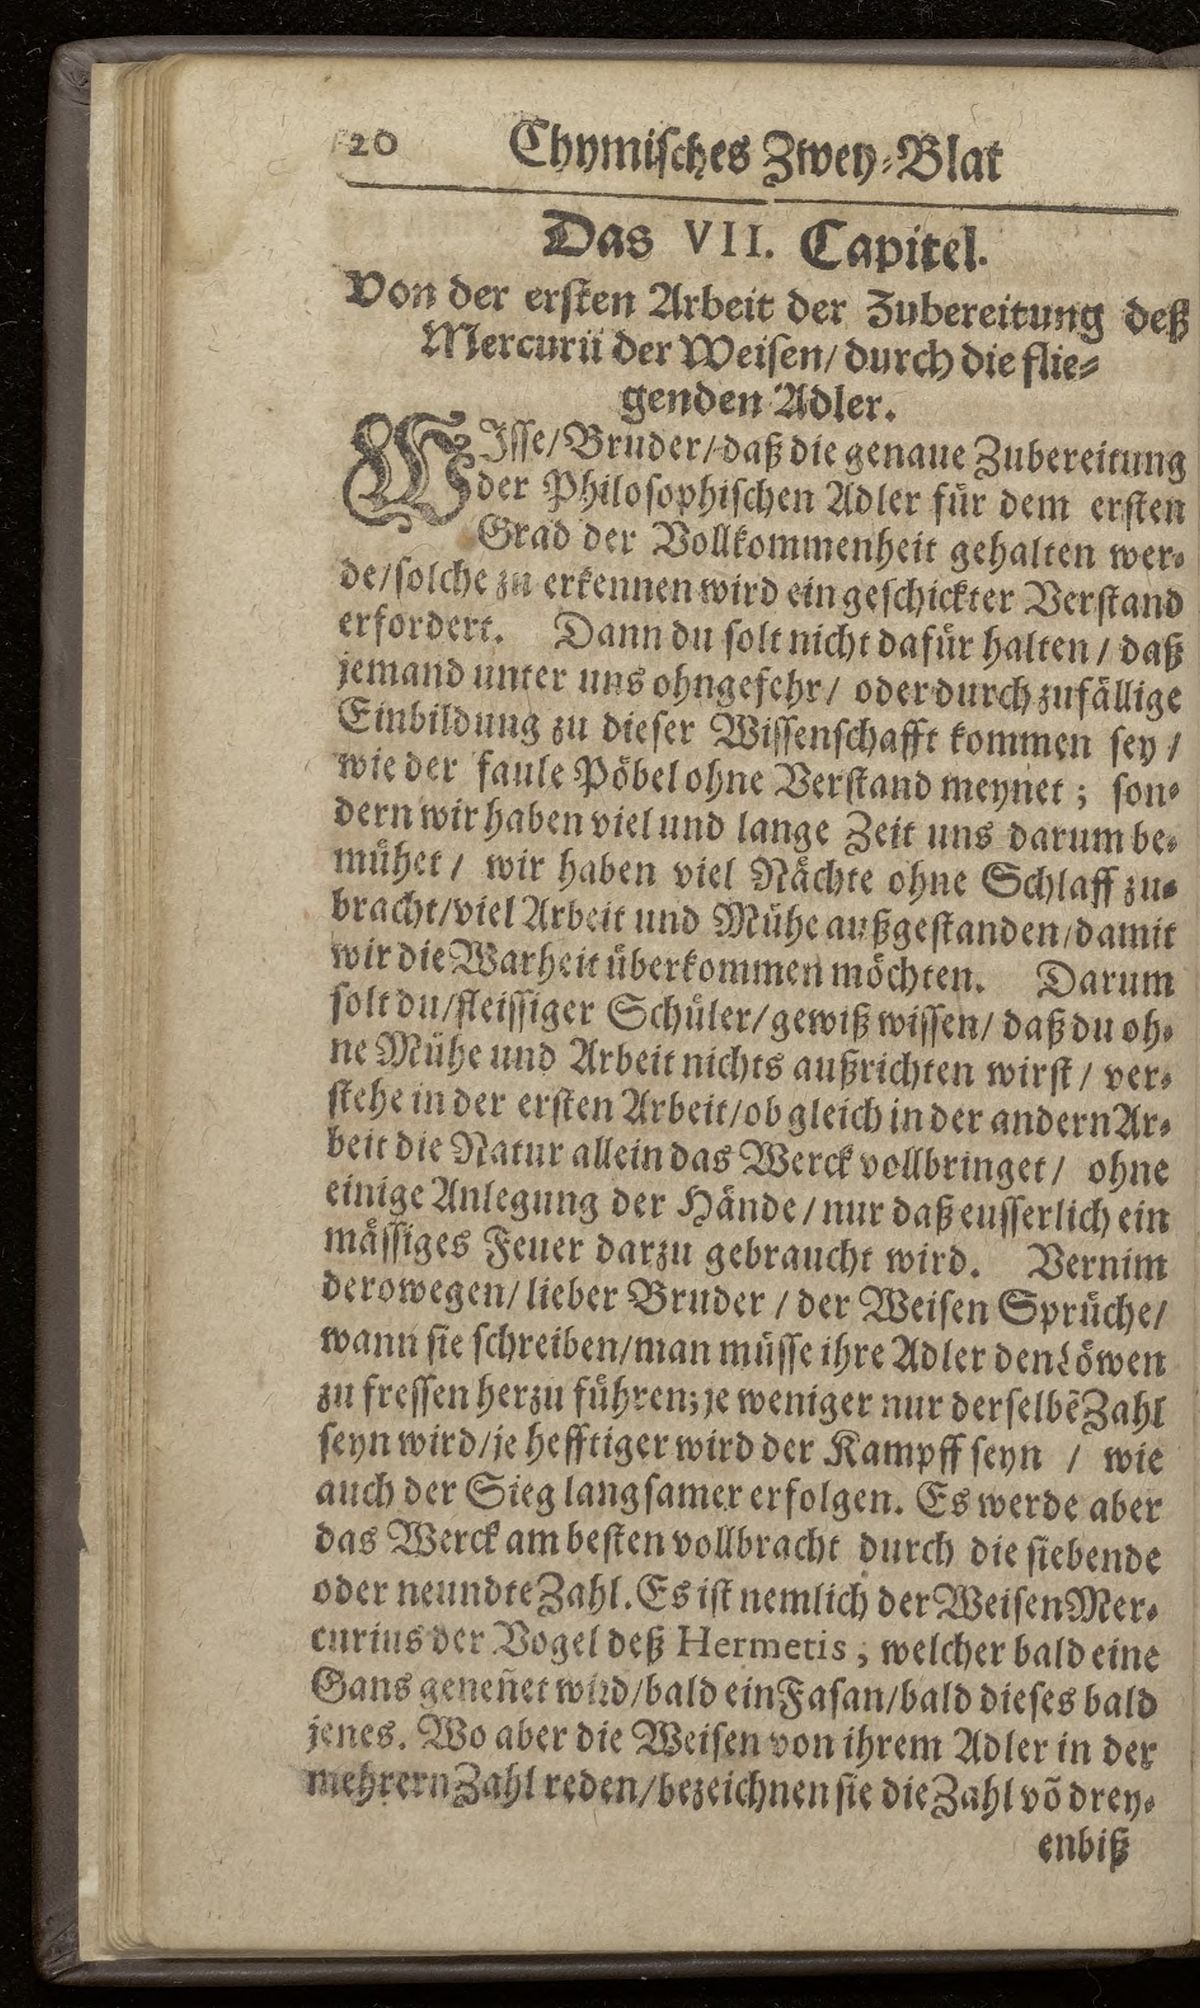 20 Chymisches Zwey-Blat
Das VII. Capitel.
Von der ersten Arbeit der Zubereitung deß
Mercurii der Weisen/ durch die flie-
genden Adler.
WIsse/ Bruder/ daß die genaue Zubereitung
der Philosophischen Adler fuͤr dem ersten
Grad der Vollkommenheit gehalten wer-
de/ solche zu erkennen wird ein geschickter Verstand
erfordert. Dann du solt nicht dafuͤr halten / daß
jemand unter uns ohngefehr/ oder durch zufaͤllige
Einbildung zu dieser Wissenschafft kommen sey /
wie der faule Poͤbel ohne Verstand meynet ; son-
dern wir haben viel und lange Zeit uns darum be-
muͤhet / wir haben viel Naͤchte ohne Schlaff zu-
bracht/ viel Arbeit und Muͤhe außgestanden/ damit
wir die Warheit uͤberkommen moͤchten. Darum
solt du/ fleissiger Schuͤler/ gewiß wissen/ daß du oh-
ne Muͤhe und Arbeit nichts außrichten wirst / ver-
stehe in der ersten Arbeit/ ob gleich in der andern Ar-
beit die Natur allein das Werck vollbringet / ohne
einige Anlegung der Haͤnde / nur daß eusserlich ein
maͤssiges Feuer darzu gebraucht wird. Vernim
derowegen/ lieber Bruder / der Weisen Spruͤche/
wann sie schreiben/ man muͤsse ihre Adler den Loͤwen
zu fressen herzu fuͤhren; je weniger nur derselbẽ Zahl
seyn wird/ je hefftiger wird der Kampff seyn / wie
auch der Sieg langsamer erfolgen. Es werde aber
das Werck am besten vollbracht durch die siebende
oder neundte Zahl. Es ist nemlich der Weisen Mer-
curius der Vogel deß Hermetis, welcher bald eine
Gans geneñet wird/ bald ein Fasan/ bald dieses bald
jenes. Wo aber die Weisen von ihrem Adler in der
mehrern Zahl reden/ bezeichnen sie die Zahl võ drey-
enbiß